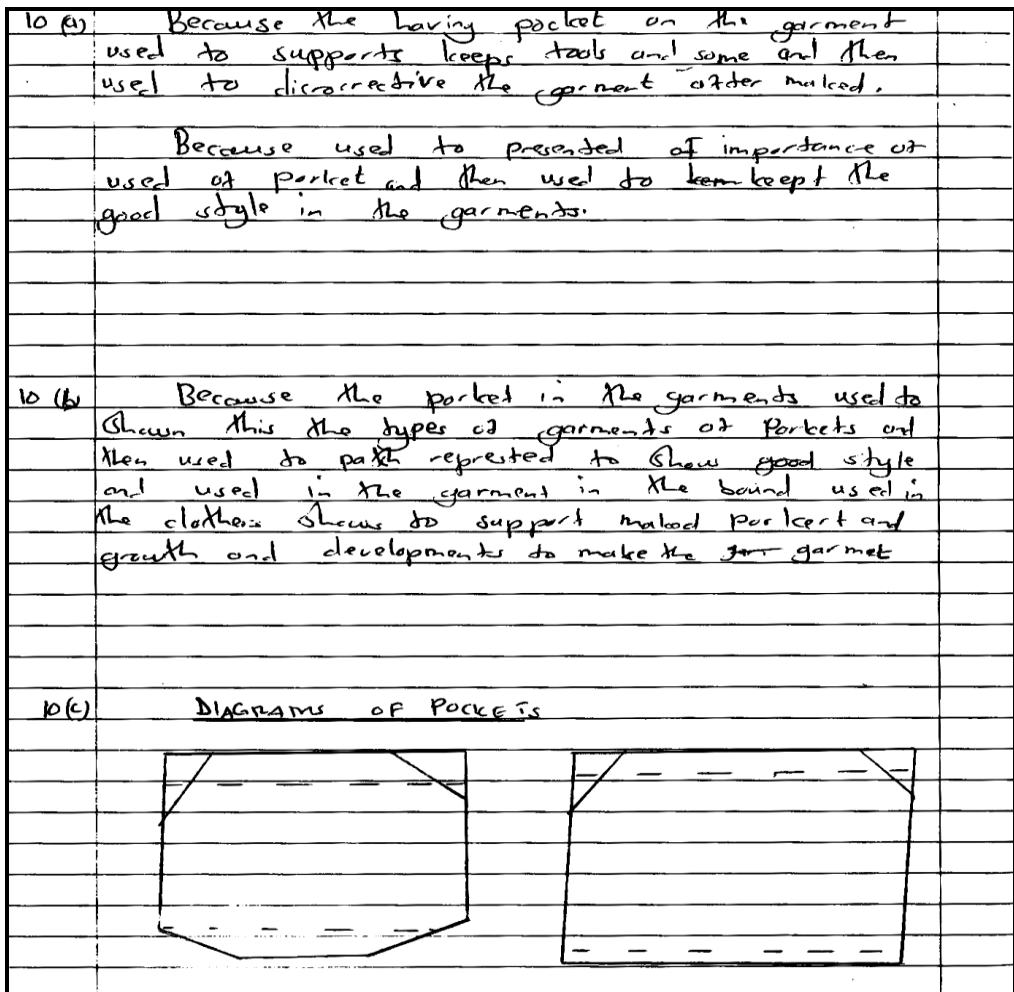 10 (a) Because the having pocket on the garment
used to supports keeps tools and some and then
used to dicrorrective the garment after maked.
Because used to presented of importance of
used of porket and then used to keept the
good style in the garments.
10 (b) Because the porket in the garments used to
Shown this the types of garments of Porkets and
then used to path represted to Show good style
and used in the garment in the bound used in
the clothers Shows to support maked porkert and
growth and developments to make the garmet
10 (c) DIAGRAMS OF POCKETS